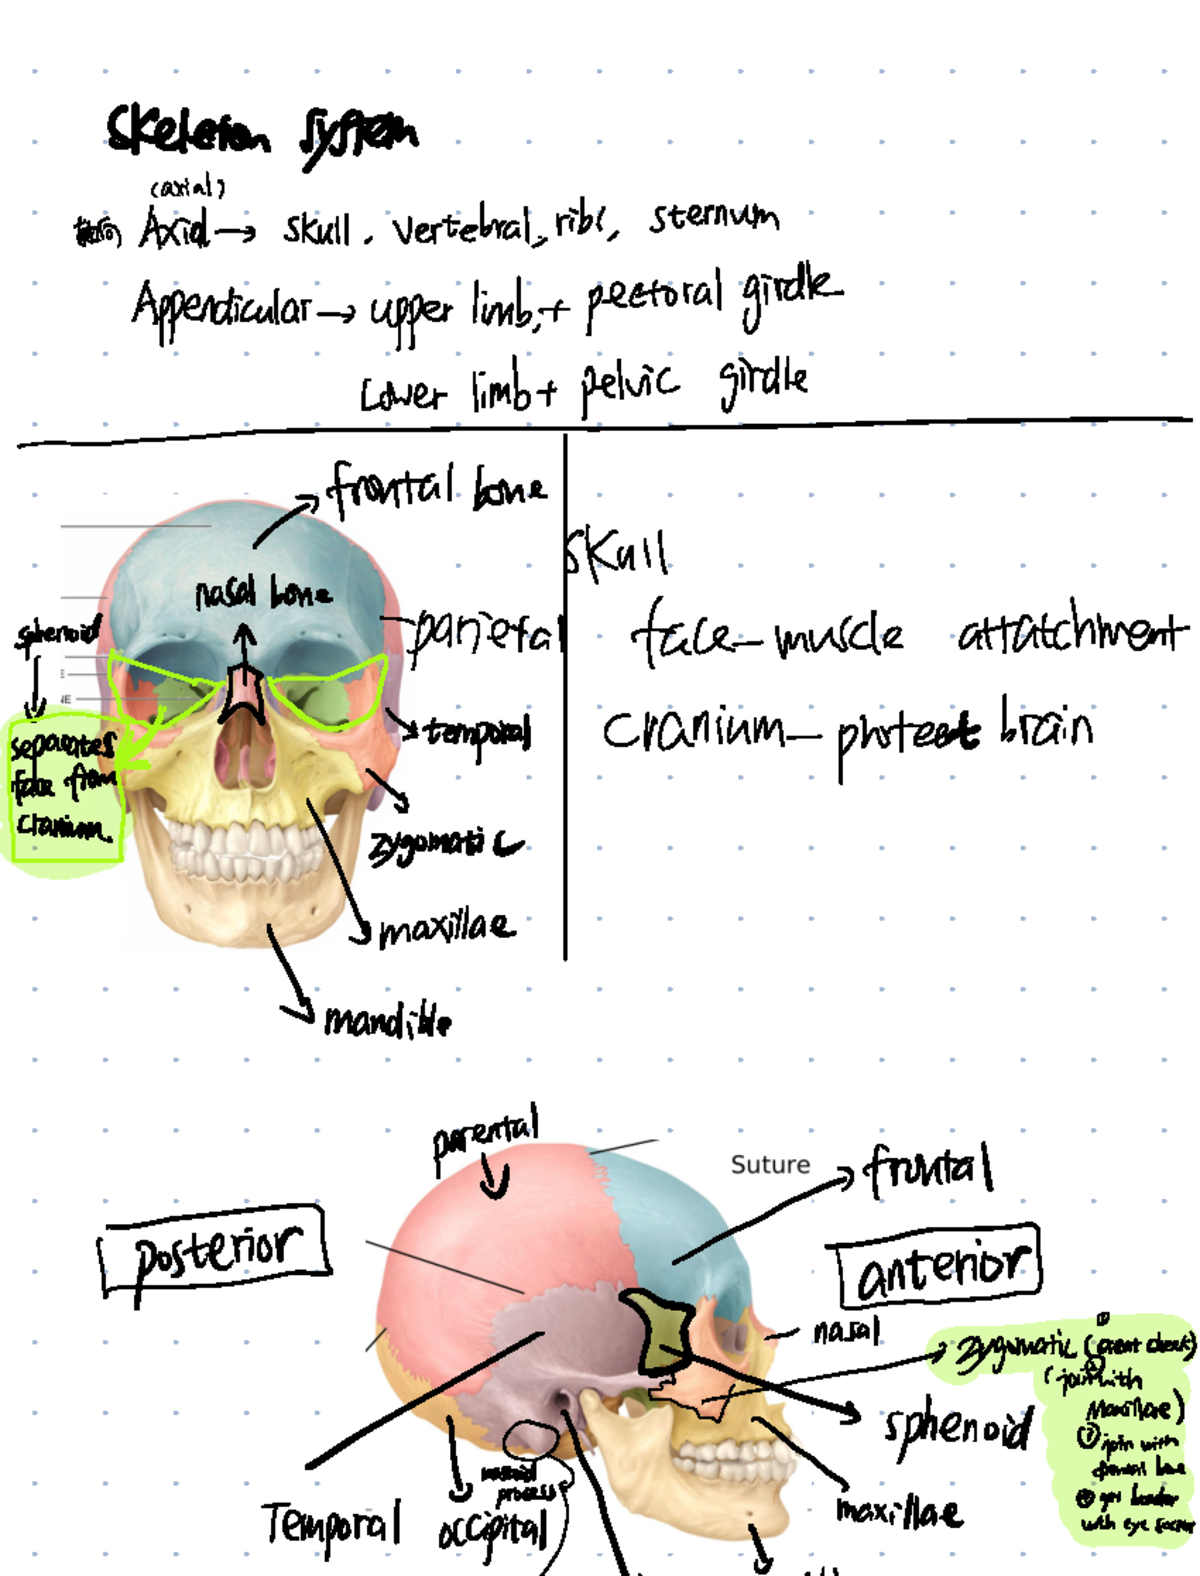 Skeleton system
(axial)
Axial → skull, vertebral, ribs, sternum
Appendicular → upper limb, + pectoral girdle
Lower limb + pelvic girdle
frontal bone
nasal bone
sphenoid
parietal
separates
face from
cranium.
temporal
zygomatic
maxillae
mandible
Skull
face - muscle attatchment
cranium - protect brain
parental
Suture
frontal
posterior
anterior
nasal
zygomatic
(join with
Maxillae)
join with
sphenoid
with eye
mastoid
process
Temporal
occipital
maxillae